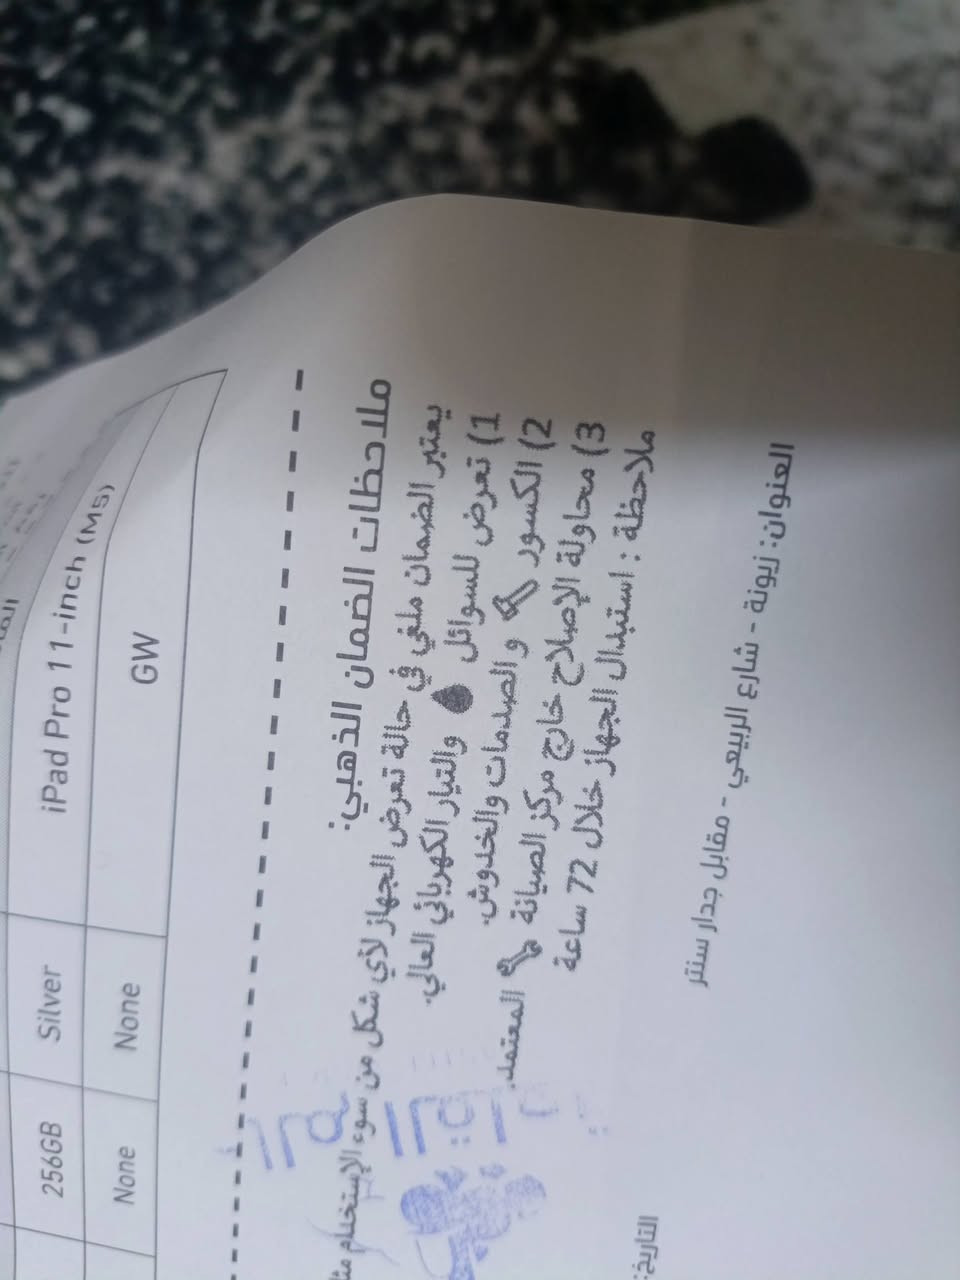 iPad Pro 11-inch (M5) Silver 256GB
GW None None
ملاحظات الضمان الذهبي:
يعتبر الضمان ملغي في حالة تعرض الجهاز لأي شكل من سوء الإستخدام
1) تعرض للسوائل والتيار الكهربائي العالي.
2) الكسور والصدمات والخدوش.
3) محاولة الإصلاح خارج مركز الصيانة المعتمد.
ملاحظة : استبدال الجهاز خلال 72 ساعة
العنوان: زيونة - شارع الربيعي - مقابل جدار سنتر
التاريخ: